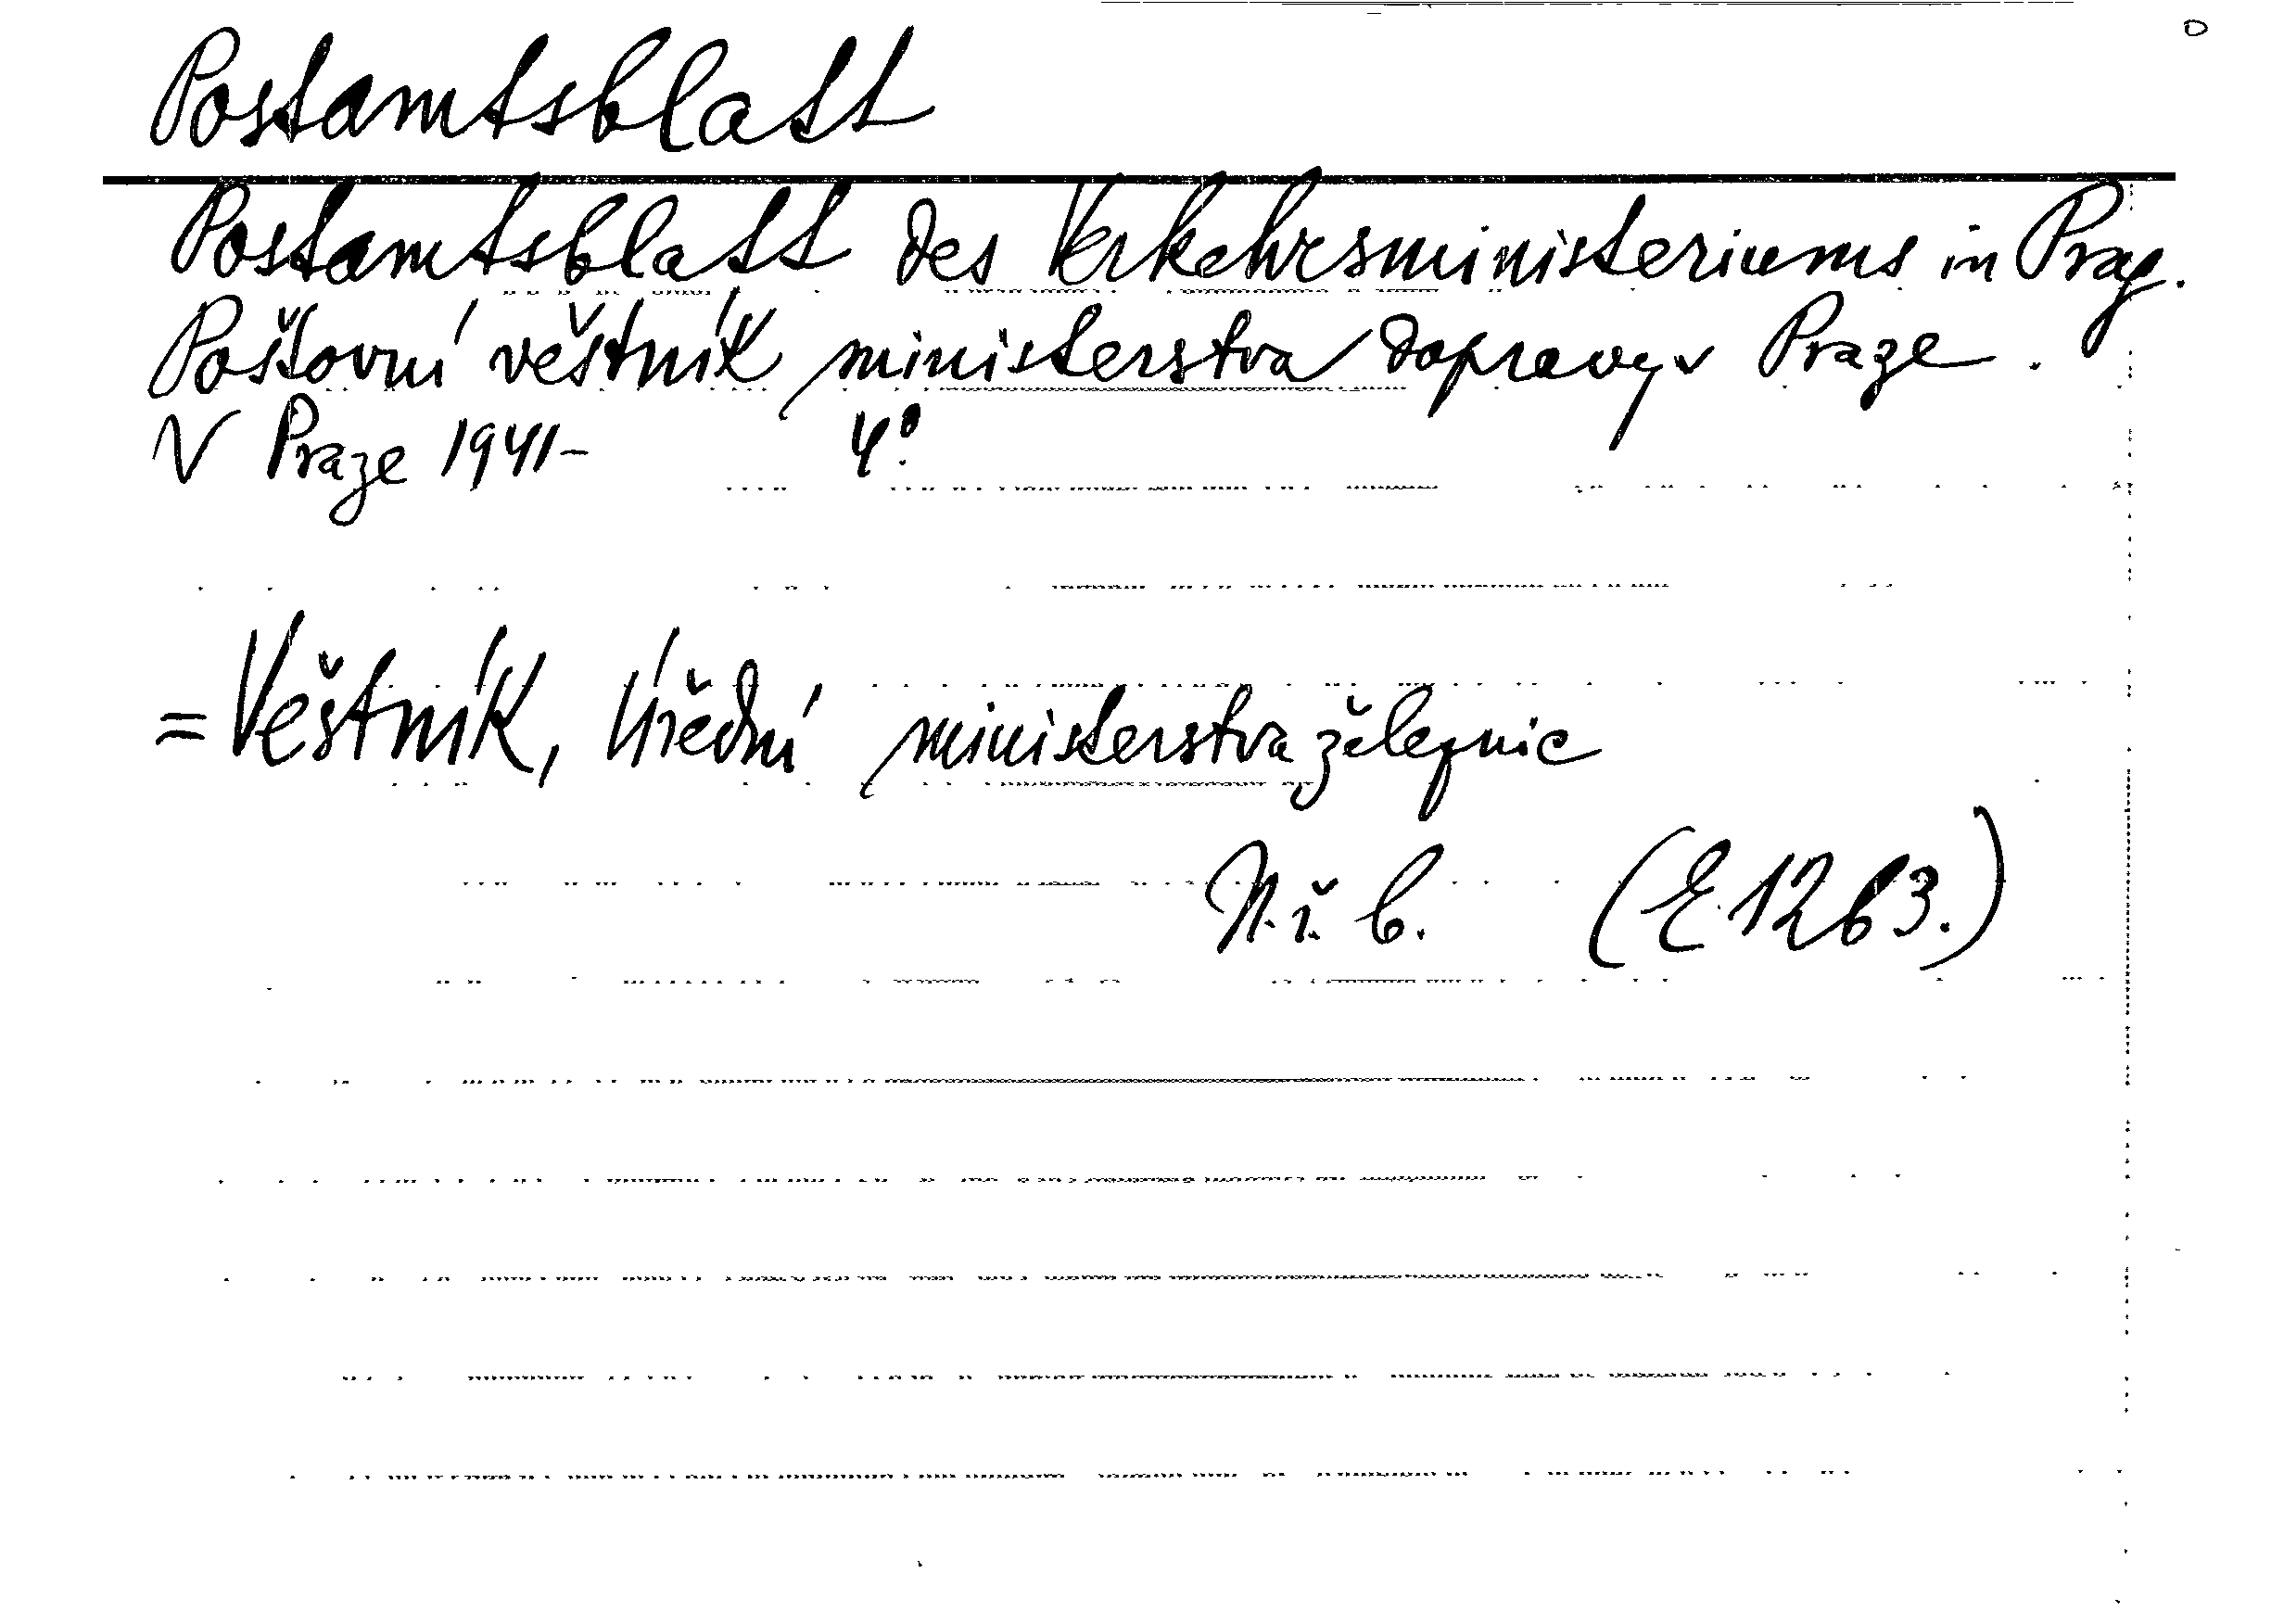 Postamtsblatt
Postamtsblatt des Verkehrsministeriums in Prag.
Poštovní věstník ministerstva dopravy v Praze.
V Praze 1941- 4°.
= Věstník, Úřední ministerstva železnic
N. ř. b. (E 1263.)